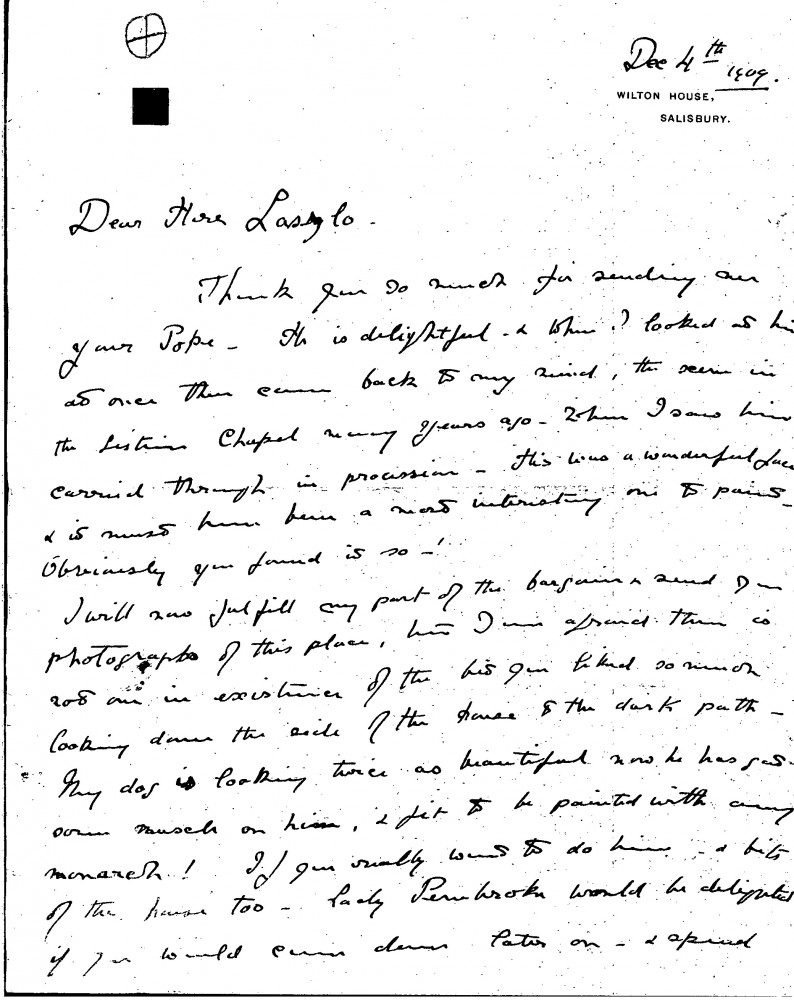 Dec 4th 1909.
WILTON HOUSE,
SALISBURY.
Dear Herr Laszlo.
Thank you so much for sending me
your Pope – He is delightful – & when I looked at him
at once there came back to my mind, the scene in
the Sistine Chapel many years ago – when I saw him
carried through in procession – His was a wonderful face
& it must have been a most interesting one to paint –
Obviously you found it so – !
I will now fulfill my part of the bargain & send you
photographs of this place, but I am afraid there is
not one in existence of the bit you liked so much
looking down the side of the house to the dark path –
My dog is looking twice as beautiful now he has got
some muscle on him, & fit to be painted with any
monarch! If you really want to do him – & bits
of the house too – Lady Pembroke would be delighted
if you would come down later on – & spend